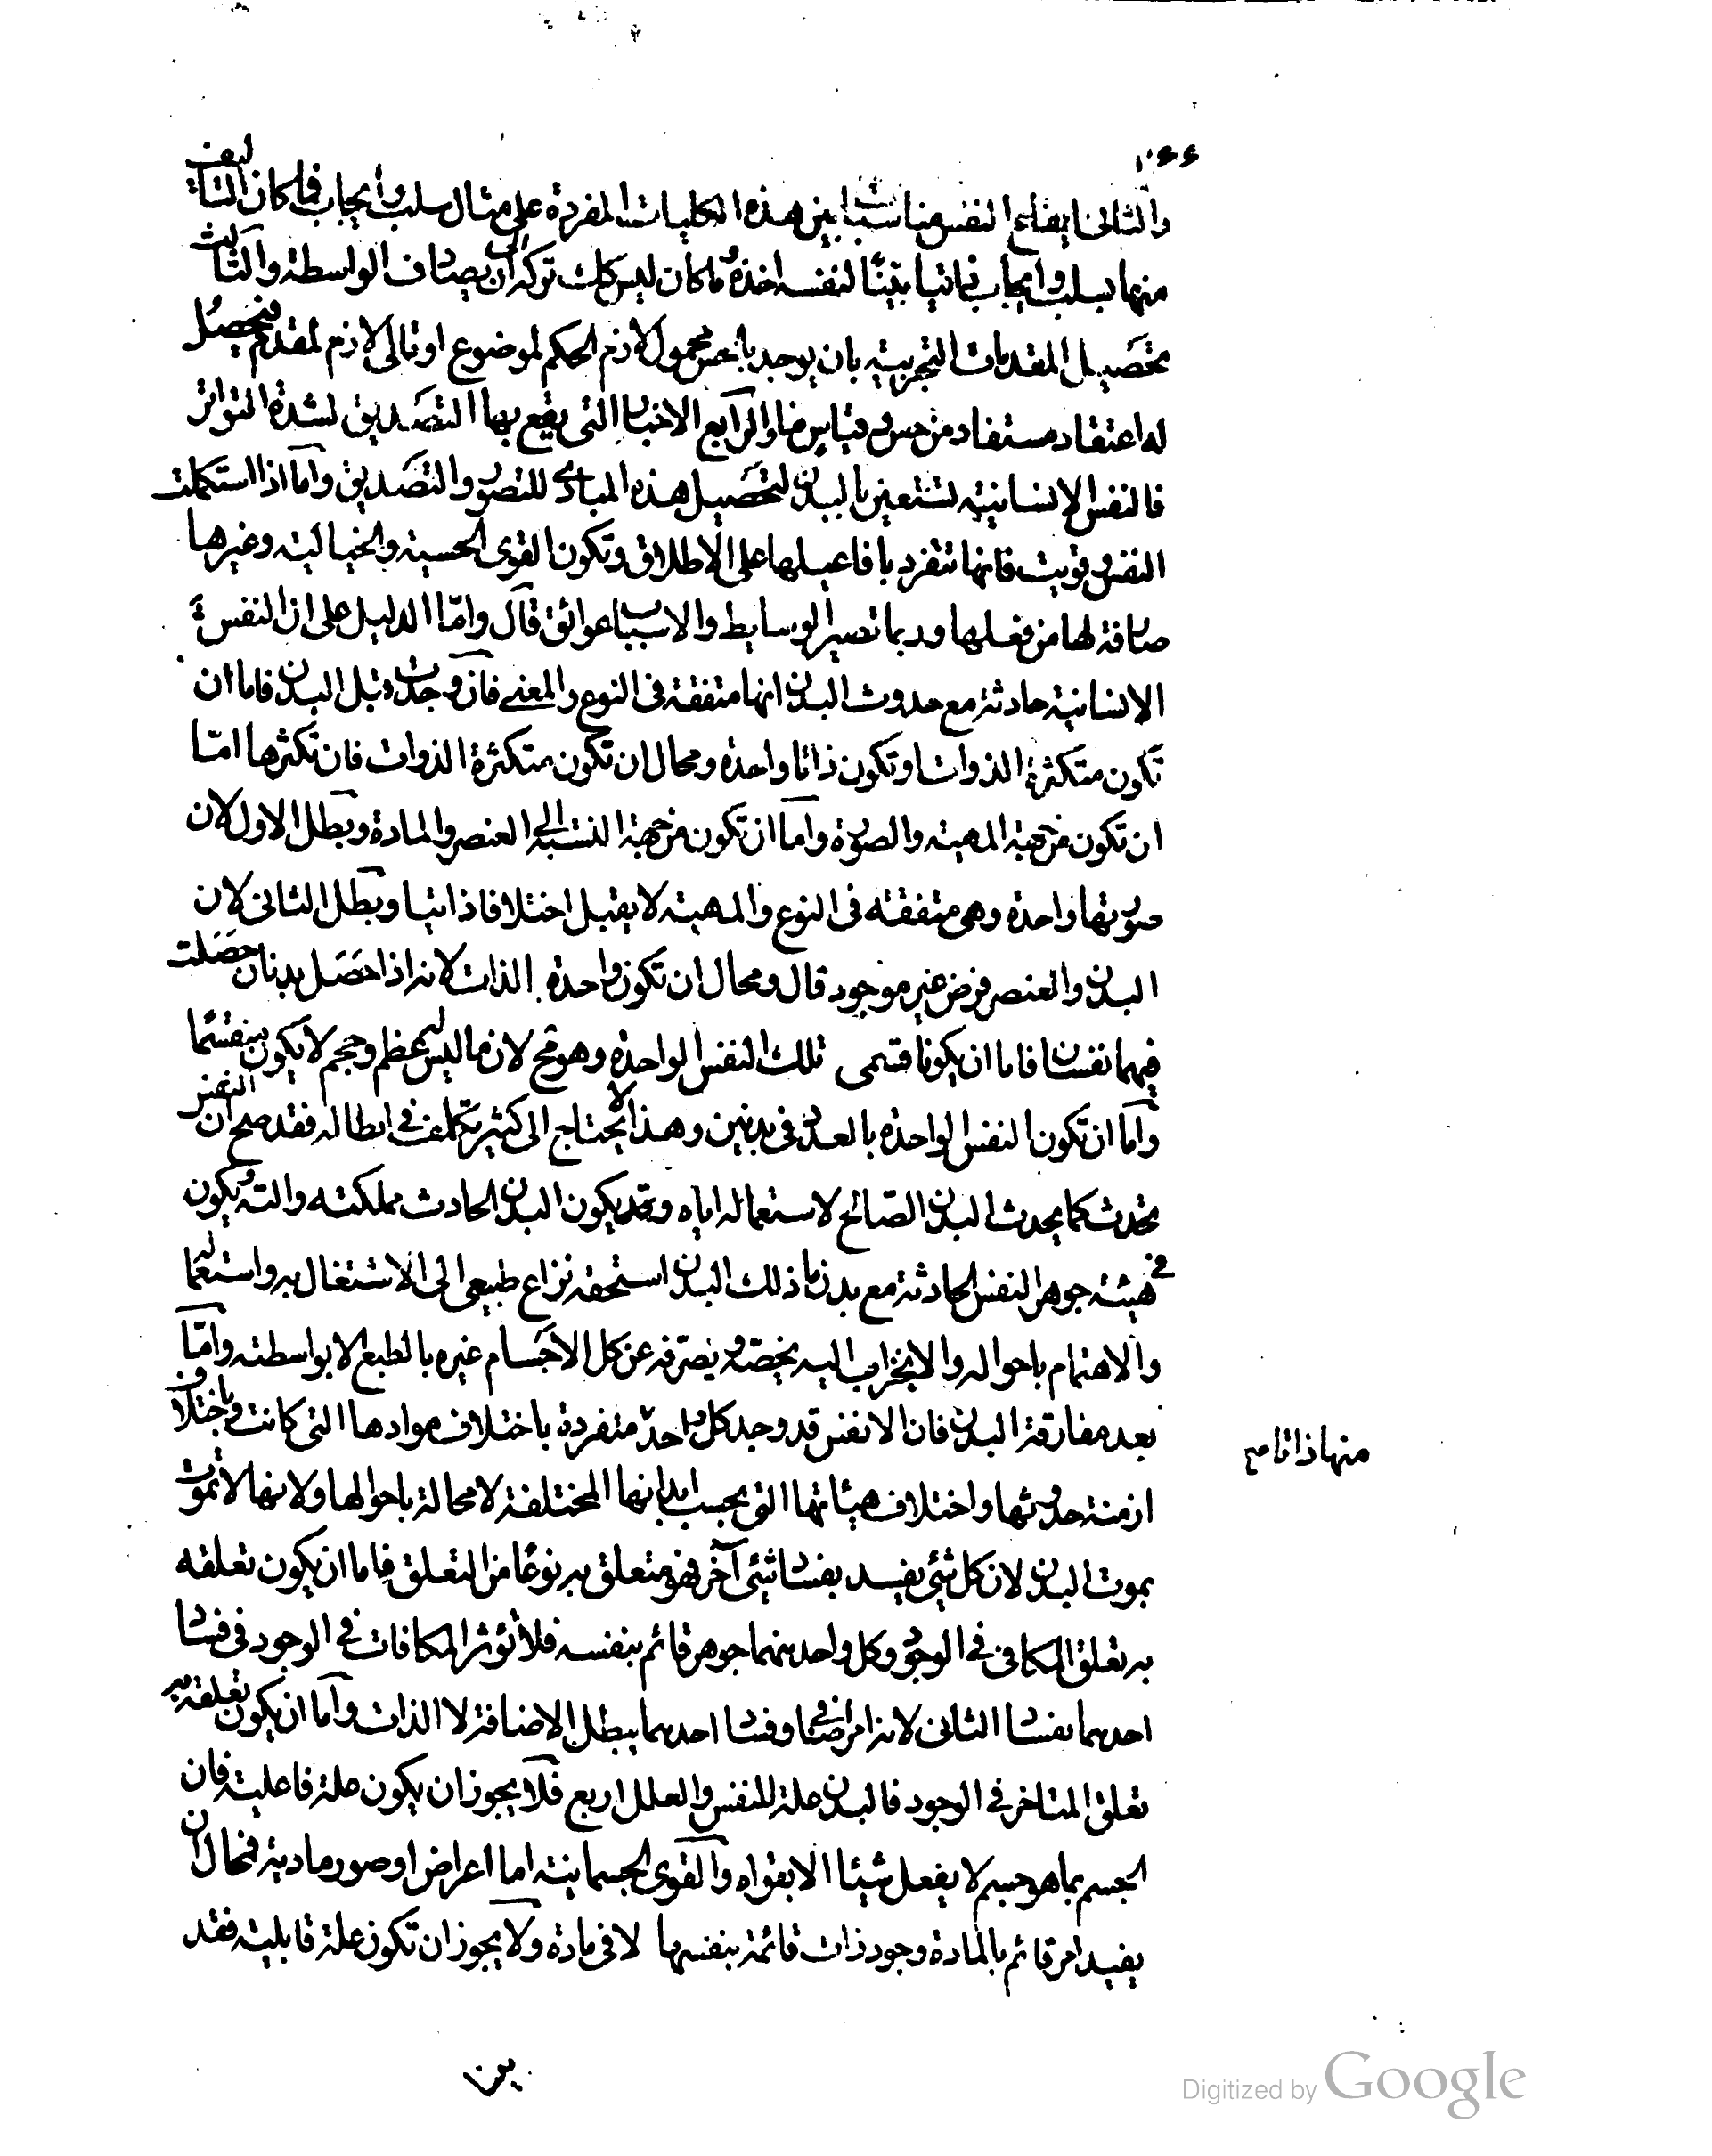 والثاني ايقاع النفس مناسبات بين هذه الكليات المفردة على مثال سلب وايجاب فما كان التأليف
منها بسلب وايجاب ذاتيا بيّنًا لنفسه اخذه وما كان ليس كذلك تركه الى ان يصادف الواسطة والثالث
تحصيل المقدمات التجربيته بان يوجد بالحس محمول لازم الحكم لموضوع او تالى لازم لمقدم فيحصل
له اعتقاد مستفاد من حس وقياس ما والرابع الاخبار التى يقع بها التصديق لشدة التواتر
فالنفس الانسانية تستعين بالبدن لتحصيل هذه المبادى للتصور والتصديق وامّا اذا استكملت
النفس وقويت فانها تتفرد بافاعيلها على الاطلاق وتكون القوى الحسية والخيالية وغيرها
صارفة لها من فعلها وربما تصير الوسايط والاسباب عوائق قال وامّا الدليل على ان النفس
الانسانية حادثة مع حدوث البدن انها متفقة فى النوع والمعنى فان وجدت قبل البدن فاما ان
تكون متكثرة الذوات او تكون ذاتا واحدة ومحال ان تكون متكثرة الذوات فان تكثرها امّا
ان تكون من جهة المهية والصورة وامّا ان تكون من جهة النسبة الى العنصر والمادة وبطل الاول لان
صورتها واحدة وهى متفقة فى النوع والمهية لا يقبل اختلافا ذاتيا وبطل الثانى لان
البدن والعنصر فرض غير موجود قال ومحال ان تكون واحدة الذات لانه اذا حصل بدنان حصلت
فيهما نفسان فاما ان يكونا قسمى تلك النفس الواحدة وهو مح لان ما ليس له عظم وحجم لا يكون منقسما
وامّا ان تكون النفس الواحدة بالعدد فى بدنين وهذا لا يحتاج الى كثير تكلف فى ابطاله فقد صح ان النفس
تحدث كما يحدث البدن الصالح لاستعماله اياه ويكون البدن الحادث مملكته والته ويكون
فى هيئة جوهر النفس الحادثة مع بدن ما ذلك البدن استحقه نزاع طبيعى الى الاشتغال به واستعماله
والاهتمام باحواله والانجذاب اليه يخصّه ويصرفه عن كل الاجسام غيره بالطبع لا بواسطته وامّا
بعد مفارقة البدن فان الانفس قد وجد كل واحد متفردة باختلاف موادها التى كانت وباختلاف
منها ذاتا صح
ازمنة حدوثها واختلاف هيئاتها التى بحسب ابدانها المختلفة لا محالة باحوالها ولانها لا تموت
بموت البدن لان كل شئ يفسد بفساد شئ آخر فهو متعلق به نوعًا من التعلق فاما ان يكون تعلقه
به تعلق المكافى فى الوجود وكل واحد منهما جوهر قائم بنفسه فلا تؤثر المكافات فى الوجود فى فساد
احدهما بفساد الثانى لانه امر اضافى وفساد احدهما يبطل الاضافة لا الذات وامّا ان يكون تعلقه به
تعلق المتاخر فى الوجود فالبدن علة للنفس والعلل اربع فلا يجوز ان يكون علة فاعلية فان
الجسم بما هو جسم لا يفعل شيئا الا بقواه والقوى الجسمانية اما اعراض او صور مادية فمحال ان
يفيد امر قائم بالمادة وجود ذات قائمة بنفسها لا فى مادة ولا يجوز ان تكون علة قابلية فقد
Digitized by Google